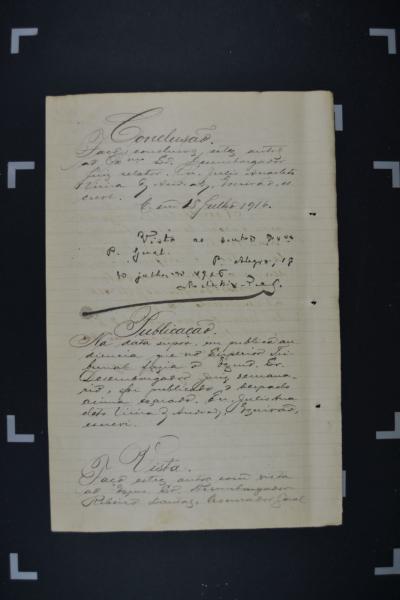 Conclusão.
Faço conclusos estes autos
ao Exmo. Sr. Desembargador
Juiz relator. Eu, Julio Anacleto
Vieira de Andrade, Escrivão, es
crevi.
C. em 18 Julho 1916.
Vista ao senhor
P. Geral.
P. Alegre, 18
de julho de 1916
Publicação.
Na data supra, em publica au
diencia, que no Superior Tri
bunal fazia o Exmo. Sr.
Desembargador Juiz semana
rio, foi publicado o despacho
acima exarado. Eu, Julio Ana
cleto Vieira de Andrade, Escrivão,
escrevi.
Vista.
Faço estes autos com vista
ao Exmo. Sr. Desembargador
Ribeiro Dantas, Procurador Geral